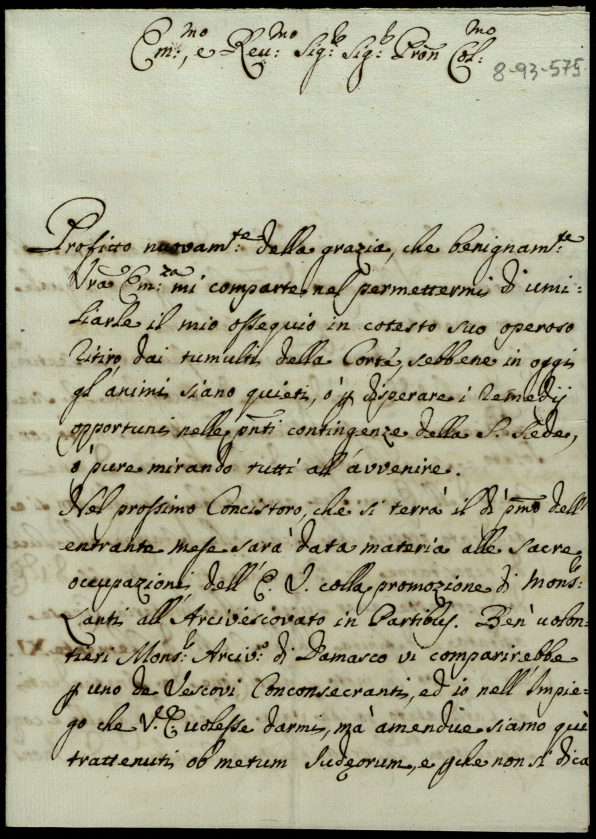 Em:mo, e Reu:mo Sig:r Sig:r Pron Col:mo
8-93-575
Profitto nuovam:te della grazia, che benignam:te
Vra Em:za mi comparte nel permettermi di umi:
liarle il mio ossequio in cotesto suo operoso
ritiro dai tumulti della Corte, sebbene in oggi
gl'animi siano quieti, ò p disperare i remedij
opportuni nelle pnti contingenze della S. Sede,
ò pure mirando tutti all'avvenire.
Nel prossimo Concistoro, che si terrà il dì pmo dell'
entrante mese sarà data materia alle sacre
occupazioni dell'E. V. colla promozione di Mons:
Lanti all'Arcivescovato in Partibus. Ben uolon:
tieri Mons:r Arciv:o di Damasco vi comparirebbe
p uno de Vescovi Conconsecranti, ed io nell'Impie:
go che V. E. uolesse darmi, mà amendue siamo quì
trattenuti ob metum Judæorum, e pche non si dica